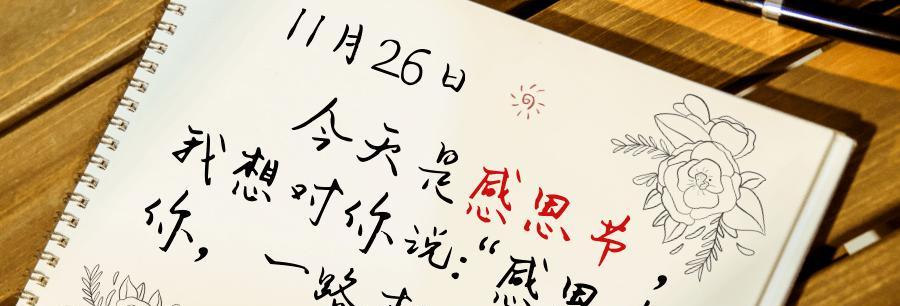 11月26日
今天是感恩节,
我想对你说:“感恩
你,一路